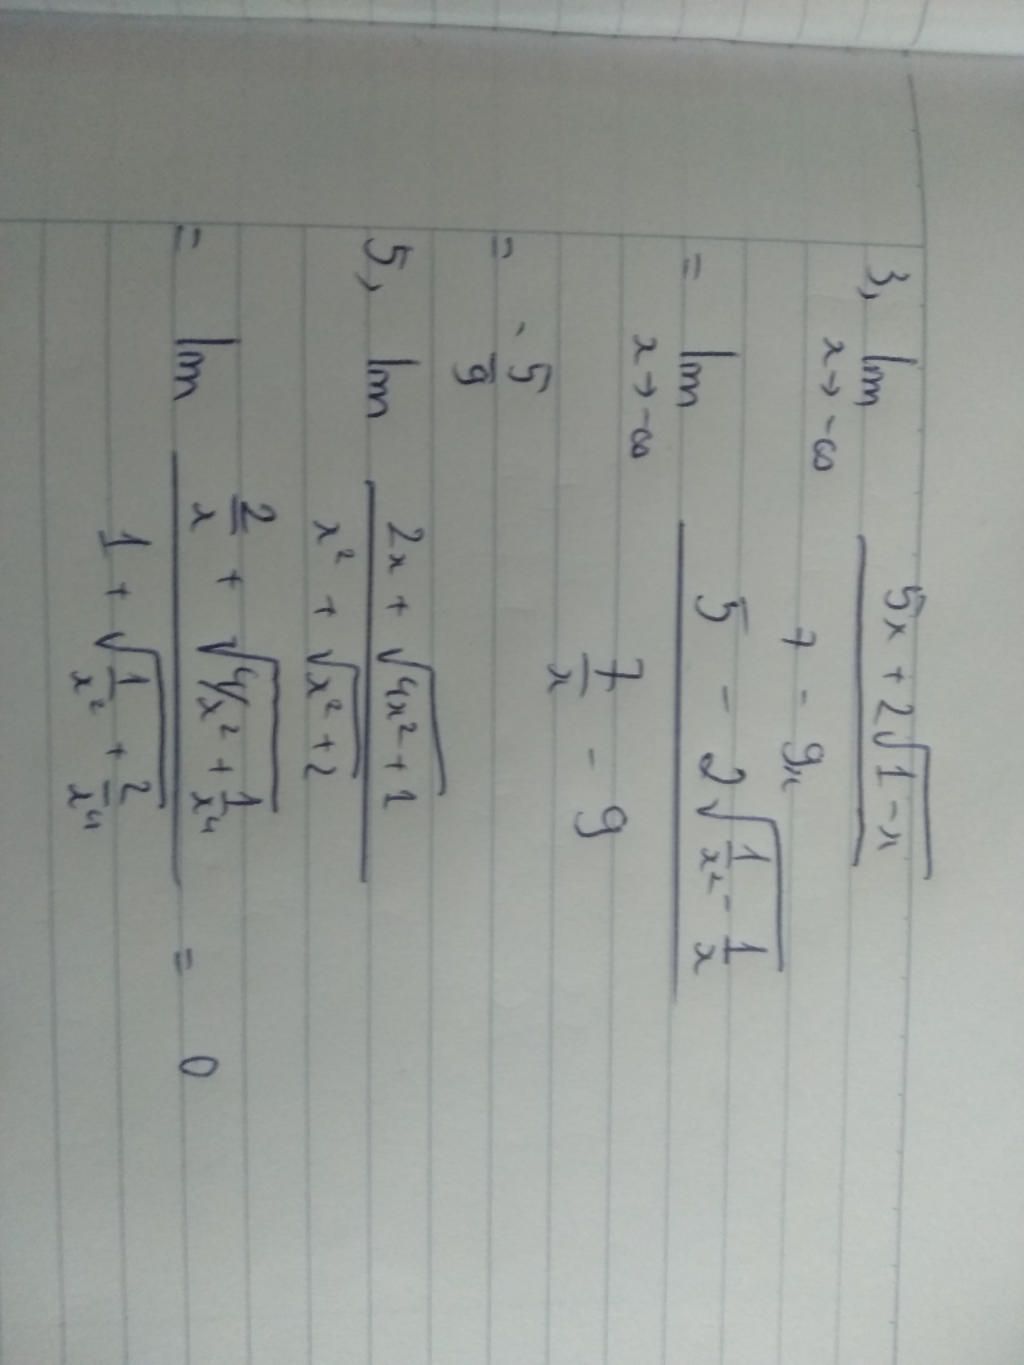 3, lim x→-∞ (5x + 2√(1-x)) / (7 - 9x)
= lim x→-∞ (5 - 2√(1/x² - 1/x)) / (7/x - 9)
= -5/9
5, lim (2x + √(4x²+1)) / (x² + √(x²+2))
= lim (2/x + √(4/x² + 1/x⁴)) / (1 + √(1/x² + 2/x⁴)) = 0